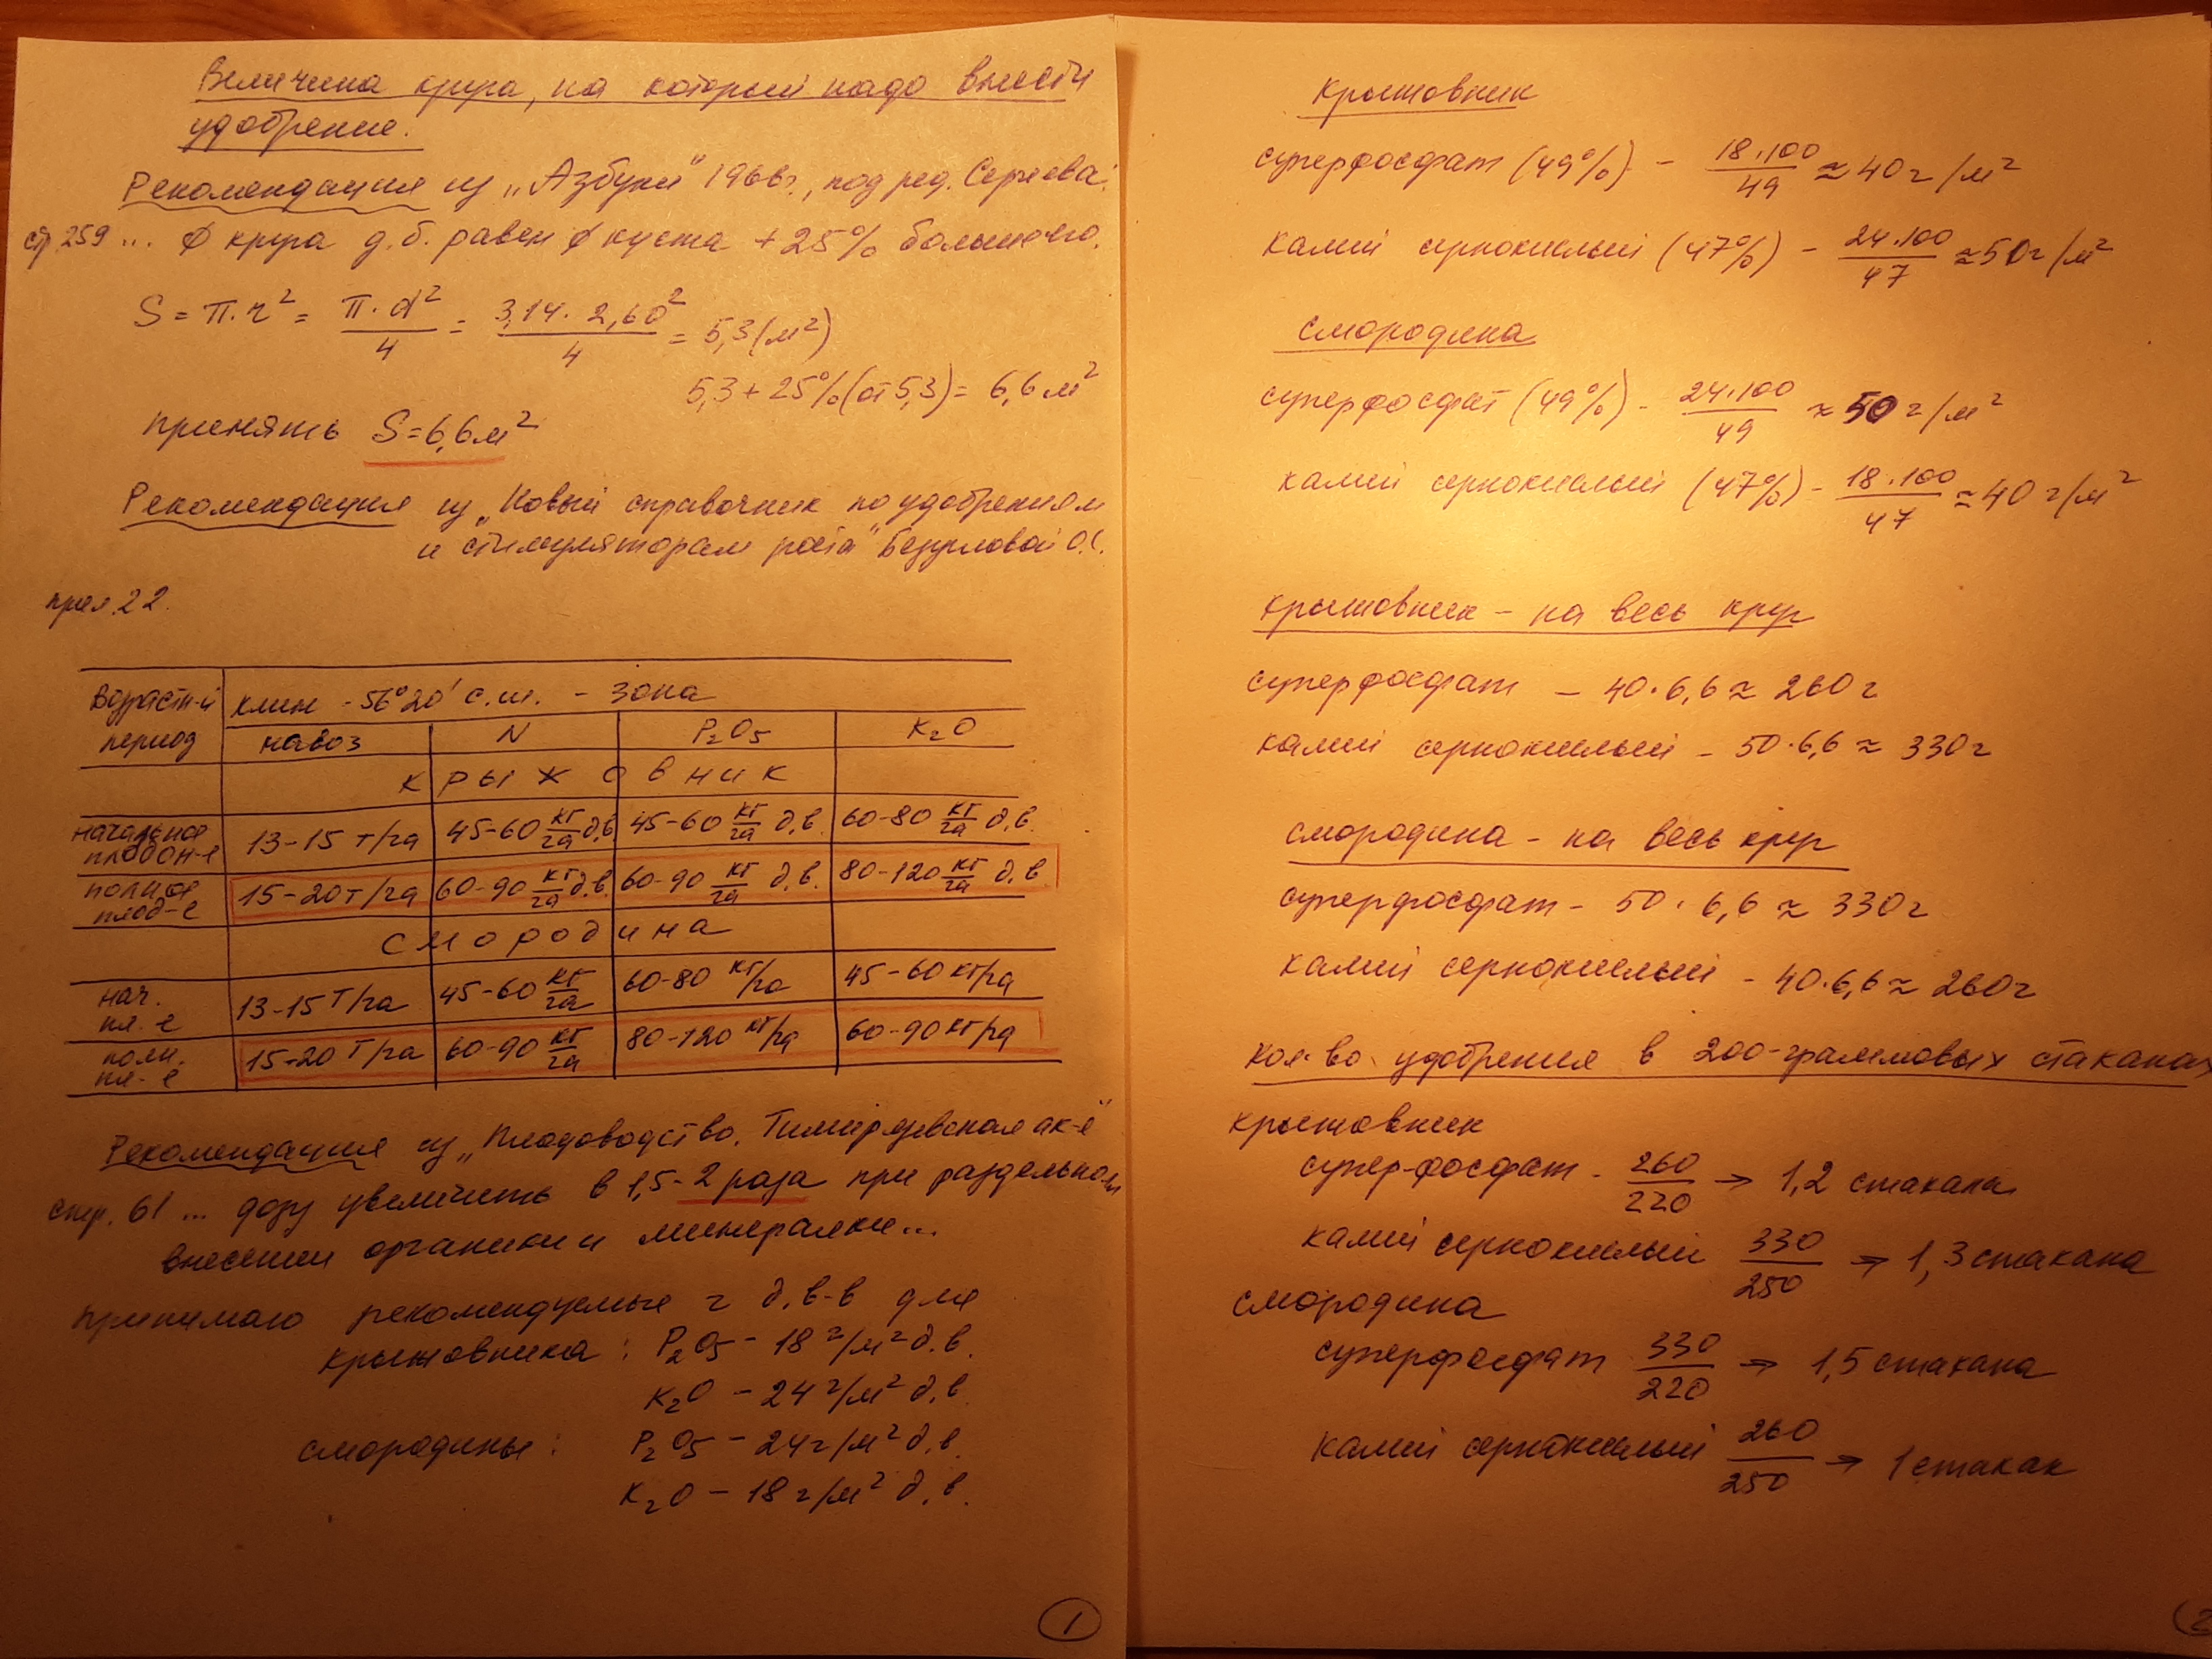 Величина круга, на который надо внести
удобрение.
Рекомендация из „Азбуки" 1966г., под ред. Сергеева:
стр. 259 ... ø круга д.б. равен ø куста + 25% большего.
S = π·r² = π·d²/4 = 3,14·2,60²/4 = 5,3 (м²)
5,3 + 25% (от 5,3) = 6,6 м²
принять S=6,6м²
Рекомендация из „Новый справочник по удобрениям
и стимуляторам роста" Безугловой О.С.
прил. 22.
Возрастн-й период | Клин - 56°20' с.ш. - зона
навоз | N | P₂O₅ | K₂O
крыжовник
начальное плодон-е | 13-15 т/га | 45-60 кг/га д.в. | 45-60 кг/га д.в. | 60-80 кг/га д.в.
полное плод-е | 15-20 т/га | 60-90 кг/га д.в. | 60-90 кг/га д.в. | 80-120 кг/га д.в
смородина
нач. пл.-е | 13-15 т/га | 45-60 кг/га | 60-80 кг/га | 45-60 кг/га
полн. пл-е | 15-20 т/га | 60-90 кг/га | 80-120 кг/га | 60-90 кг/га
Рекомендация из „Плодоводство. Тимирязевская ак-я"
стр. 61 ... дозу увеличить в 1,5-2 раза при раздельном
внесении органики и минералки...
Принимаю рекомендуемые г д.в-в для
крыжовника: P₂O₅ - 18 г/м² д.в.
K₂O - 24 г/м² д.в.
смородины: P₂O₅ - 24 г/м² д.в.
K₂O - 18 г/м² д.в.
1
Крыжовник
суперфосфат (49%) - 18·100/49 ≈ 40 г/м²
Калий сернокислый (47%) - 24·100/47 ≈ 50 г/м²
смородина
суперфосфат (49%) - 24·100/49 ≈ 50 г/м²
калий сернокислый (47%) - 18·100/47 ≈ 40 г/м²
крыжовник - на весь круг
суперфосфат - 40·6,6 ≈ 260 г
калий сернокислый - 50·6,6 ≈ 330 г
смородина - на весь круг
суперфосфат - 50·6,6 ≈ 330 г
калий сернокислый - 40·6,6 ≈ 260 г
Кол-во удобрения в 200-граммовых стаканах
крыжовник
супер-фосфат - 260/220 → 1,2 стакана
калий сернокислый 330/250 → 1,3 стакана
смородина
суперфосфат 330/220 → 1,5 стакана
Калий сернокислый 260/250 → 1 стакан
2